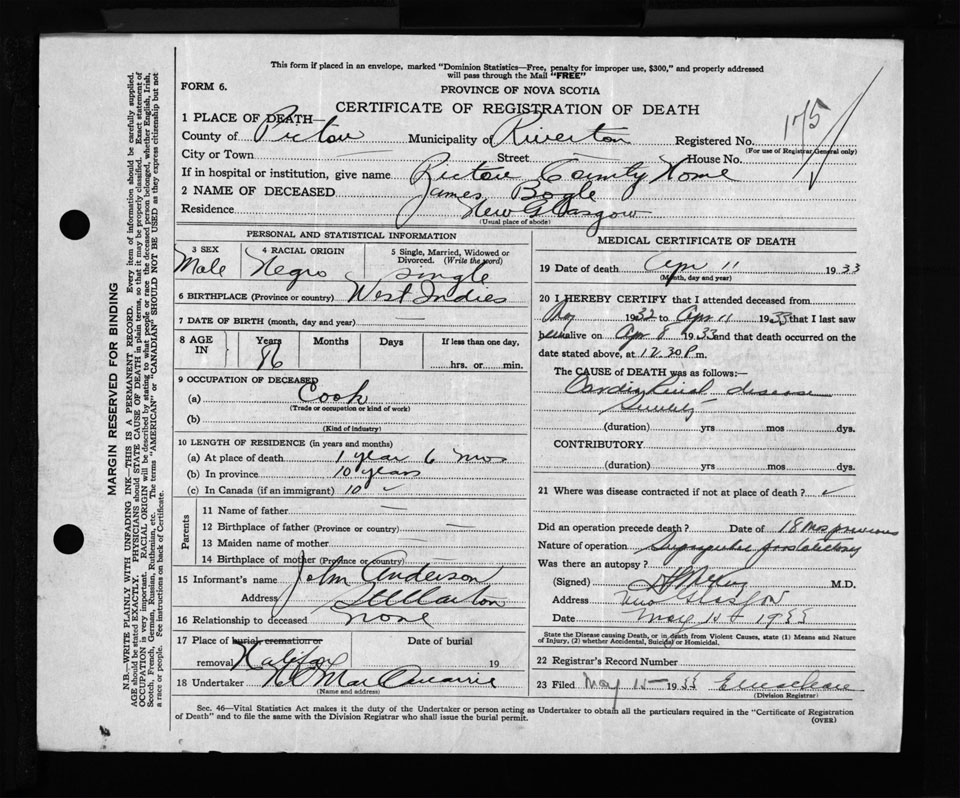 This form if placed in an envelope, marked "Dominion Statistics—Free, penalty for improper use, $300," and properly addressed
will pass through the Mail "FREE"
FORM 6.
PROVINCE OF NOVA SCOTIA
CERTIFICATE OF REGISTRATION OF DEATH
1 PLACE OF DEATH—
County of Pictou Municipality of Riverton Registered No. 175
(For use of Registrar General only)
City or Town — Street — House No.
If in hospital or institution, give name Pictou County Home
2 NAME OF DECEASED James Bogle
Residence New Glasgow
(Usual place of abode)
PERSONAL AND STATISTICAL INFORMATION
3 SEX Male
4 RACIAL ORIGIN Negro
5 Single, Married, Widowed or
Divorced. (Write the word)
Single
6 BIRTHPLACE (Province or country) West Indies
7 DATE OF BIRTH (month, day and year)
8 AGE IN Years Months Days If less than one day,
86 hrs. or min.
9 OCCUPATION OF DECEASED
(a) Cook
(Trade or occupation or kind of work)
(b)
(Kind of industry)
10 LENGTH OF RESIDENCE (in years and months)
(a) At place of death 1 year 6 mos
(b) In province 10 years
(c) In Canada (if an immigrant) 10 ✓
Parents
11 Name of father —
12 Birthplace of father (Province or country) —
13 Maiden name of mother —
14 Birthplace of mother (Province or country) —
15 Informant's name John Anderson
Address Stellarton
16 Relationship to deceased none
17 Place of burial, cremation or Date of burial
removal Halifax 19
18 Undertaker MacQuarrie
(Name and address)
MEDICAL CERTIFICATE OF DEATH
19 Date of death Apr 11 1933
(Month, day and year)
20 I HEREBY CERTIFY that I attended deceased from
1932 to Apr 11 1933 that I last saw
him alive on Apr 8 1933 and that death occurred on the
date stated above, at 12.30 P m.
The CAUSE of DEATH was as follows:—
Cardio Renal disease
Senility
(duration) yrs mos dys.
CONTRIBUTORY
(duration) yrs mos dys.
21 Where was disease contracted if not at place of death? ✓
Did an operation precede death? Date of 18 mos previous
Nature of operation Suprapubic prostatectomy
Was there an autopsy?
(Signed) M.D.
Address New Glasgow
Date May 15 1933
State the Disease causing Death, or in death from Violent Causes, state (1) Means and Nature
of Injury, (2) whether Accidental, Suicidal or Homicidal.
22 Registrar's Record Number
23 Filed May 15 1933
(Division Registrar)
Sec. 46—Vital Statistics Act makes it the duty of the Undertaker or person acting as Undertaker to obtain all the particulars required in the "Certificate of Registration
of Death" and to file the same with the Division Registrar who shall issue the burial permit.
(OVER)
MARGIN RESERVED FOR BINDING
N.B.—WRITE PLAINLY WITH UNFADING INK—THIS IS A PERMANENT RECORD. Every item of information should be carefully supplied.
AGE should be stated EXACTLY. PHYSICIANS should STATE CAUSE OF DEATH in plain terms, so that it may be properly classified. Exact statement of
OCCUPATION is very important. RACIAL ORIGIN will be described by stating to what people or race the deceased person belonged, whether English, Irish,
Scotch, French, German, Russian, Ruthenian, etc. The terms "AMERICAN" or "CANADIAN" SHOULD NOT BE USED as they express citizenship but not
a race or people. See instructions on back of Certificate.